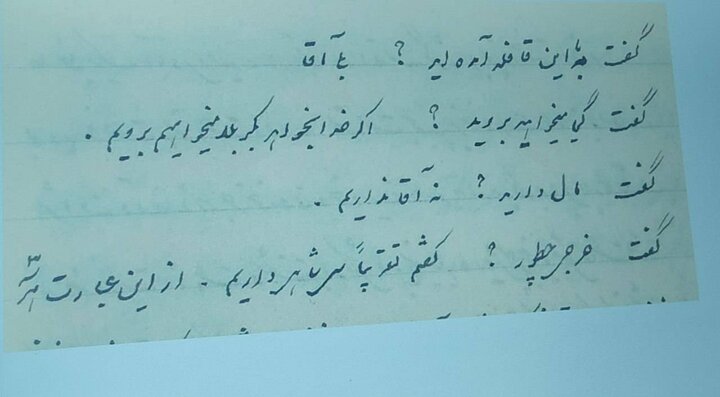 گفت با این قافله آمده اید ؟ بلی آقا
گفت کجا میخواهید بروید ؟ اگر خدا بخواهد کربلا میخواهیم برویم .
گفت مال دارید ؟ نه آقا نداریم .
گفت خرجی چطور ؟ گفتم تقریباً سی شاهی داریم . از این عبارت